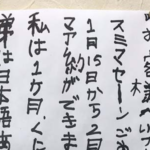 お客様へ
スミマセーンご
1月15日から2月
マアムができま
私は1ケ月、くに
は日本語